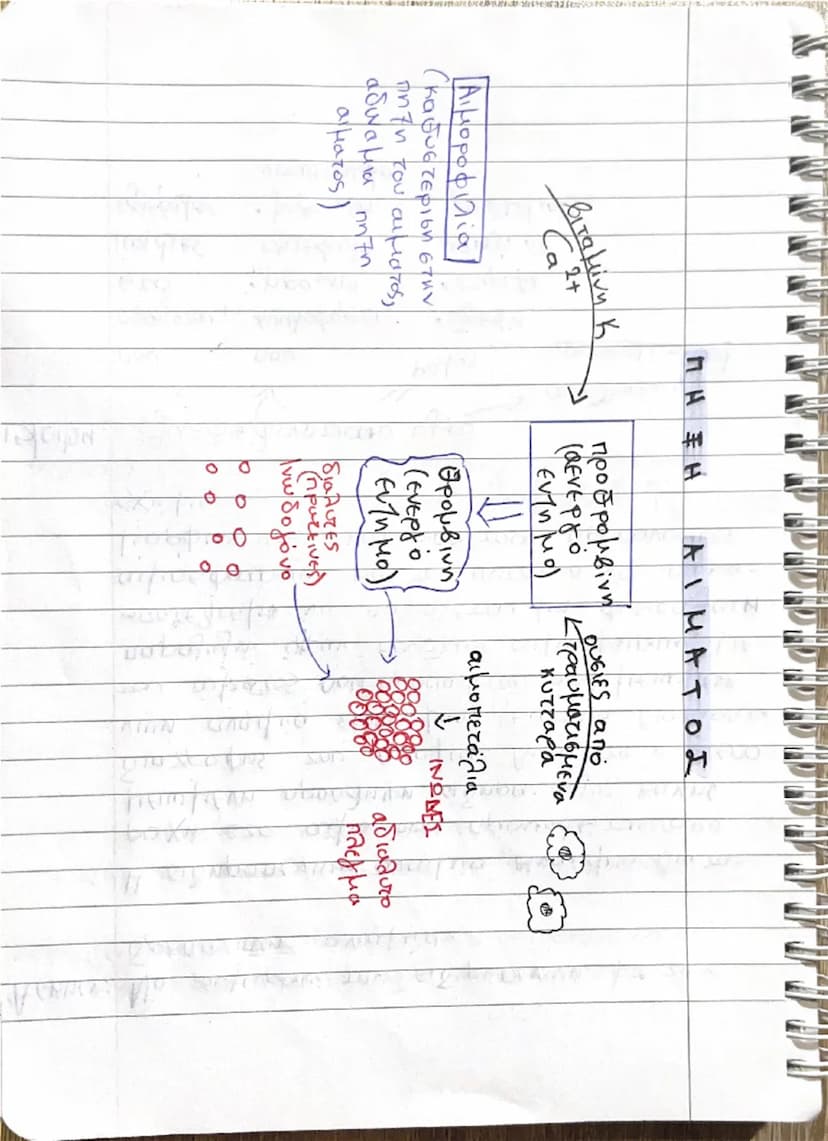 ΠΗΞΗ ΑΙΜΑΤΟΣ
βιταμίνη Κ
Ca 2+
προθρομβίνη
(ανενεργό
ένζημο)
ουσίες από
τραυματισμένα
κύτταρα
αιμοπετάλια
θρομβίνη
(ενεργό
ένζημο)
ΙΝΩΔΕΣ
αδιάλυτο
πλέγμα
διαλυτές
(πρωτεΐνες)
Ινωδογόνο
Αιμοροφιλία
(καθυστέριση στην
πήξη του αίματος,
αδυναμία πήξη
αίματος)